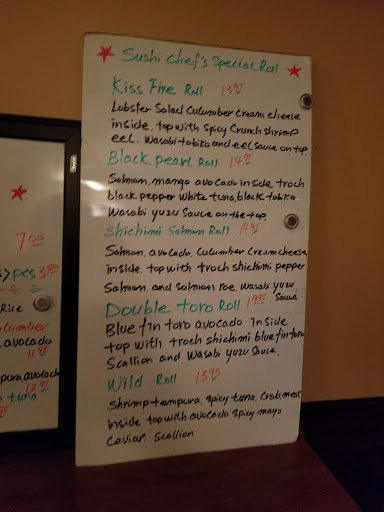 Sushi Chef's Special Roll
Kiss Fire Roll 13.95
Lobster Salad Cucumber Cream cheese
inside. top with spicy Crunch shrimp
eel. Wasabi tobiko and eel sauce on top.
Black pearl Roll 14.95
Salmon, mango avocado inside troch
black pepper white tuna, black tobiko
Wasabi yuzu Sauce on the top
Shichimi Salmon Roll 14.95
Salmon, avocado, Cucumber Creamcheese
inside, top with troch shichimi pepper
Salmon, and salmon roe wasabi yuzu
Sauce
Double toro Roll 19.95
Blue fin toro avocado inside
top with troch shichimi blue fin toro
Scallion and Wasabi yuzu Sauce.
Wild Roll 13.95
Shrimp tempura, spicy tuna, Crab meat
Inside top with avocado spicy mayo
Caviar Scallion
7.00
pcs
Rice
avocado
11.95
pura, avocado
tuna